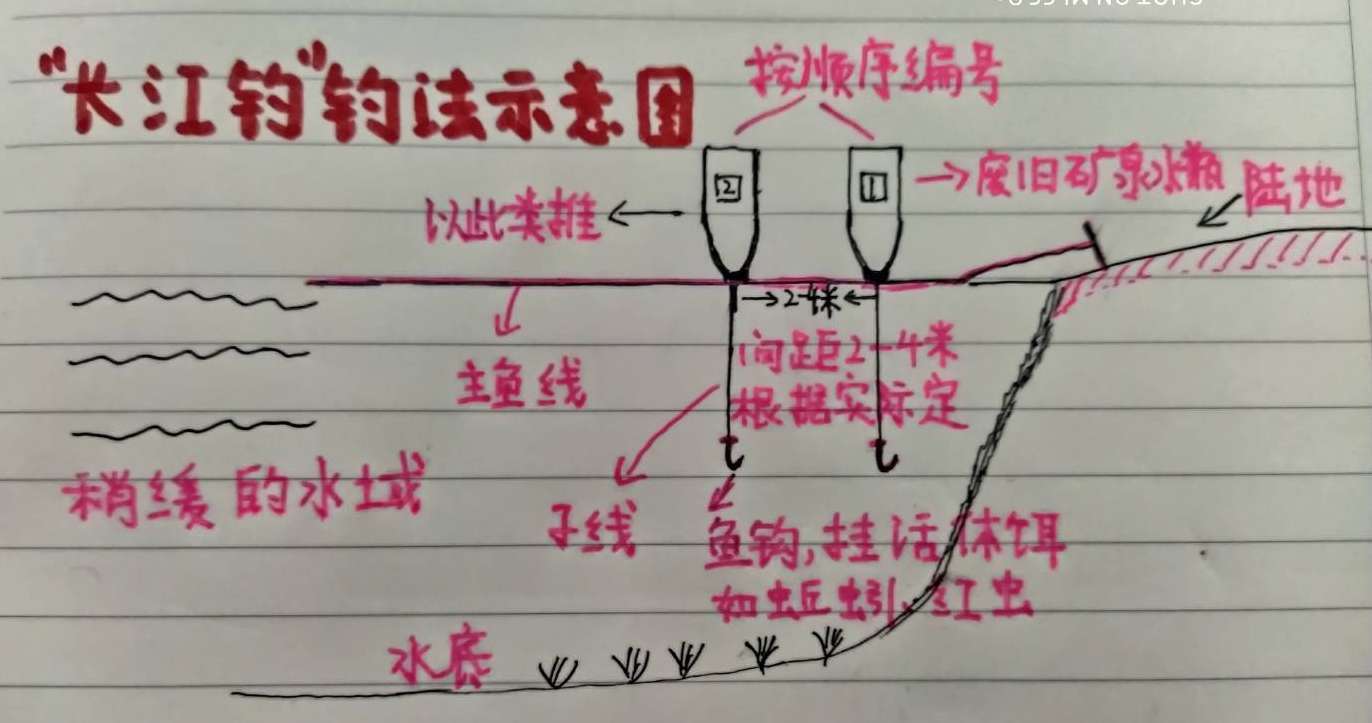 “长江钓”钓法示意图
按顺序编号
2
1
废旧矿泉水瓶
陆地
以此类推
2-4米
主鱼线
间距2-4米
根据实际定
稍缓的水域
子线
鱼钩,挂活体饵
如蚯蚓、红虫
水底